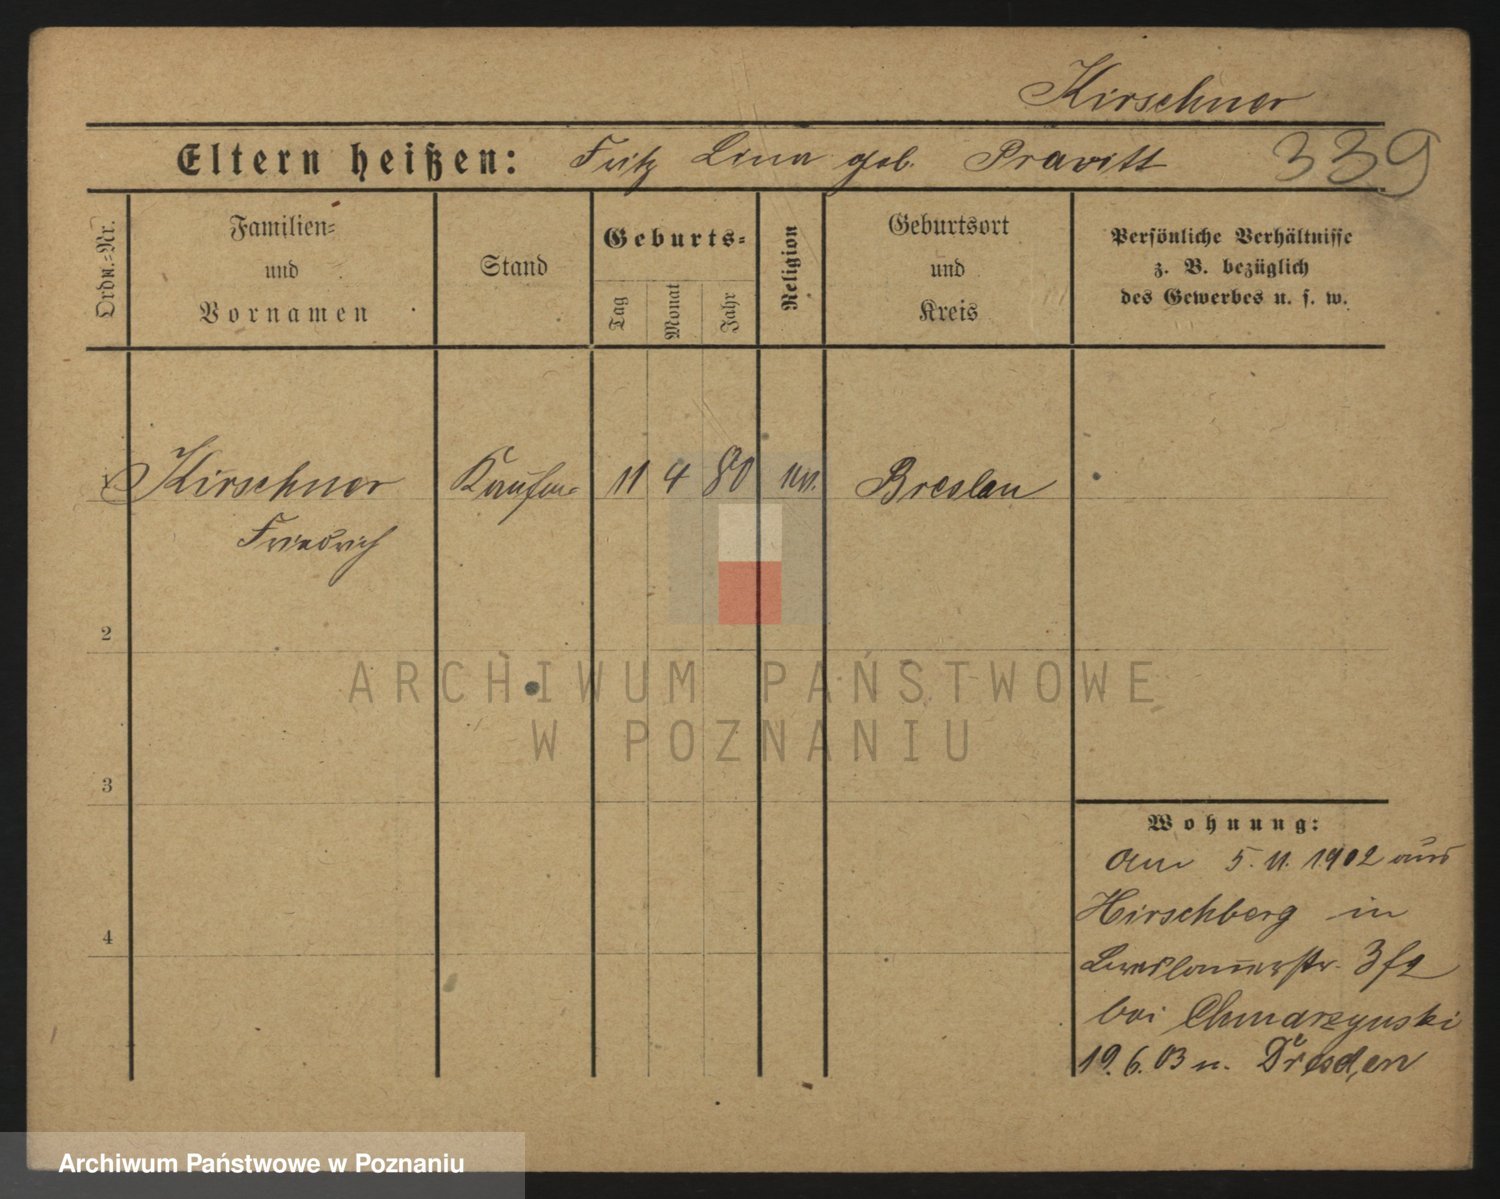 Kirschner
Eltern heißen: Fritz Lina geb. Prawitt 339
Ordn.-Nr.
Familien-
und
Vornamen
Stand
Geburts-
Tag
Monat
Jahr
Religion
Geburtsort
und
Kreis
Persönliche Verhältnisse
z. B. bezüglich
des Gewerbes u. s. w.
1 Kirschner Kaufm. 11 4 80 Breslau
Friedrich
2
3
4
ARCHIWUM PAŃSTWOWE
W POZNANIU
Wohnung:
Am 5. 11. 1902 aus
Hirschberg in
Breslauerstr.
bei Chmarzynski
19. 6. 03 n. Dresden
Archiwum Państwowe w Poznaniu